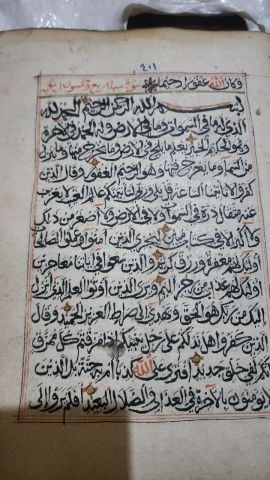 ٤٠١
وكان الله غفورا رحيما سورة سبا اربع وخمسون اية
بسم الله الرحمن الرحيم الحمد لله
الذي له ما في السموات وما في الارض وله الحمد في الاخرة
وهو الحكيم الخبير يعلم ما يلج في الارض وما يخرج منها وما ينزل
من السماء وما يعرج فيها وهو الرحيم الغفور وقال الذين
كفروا لا تاتينا الساعة قل بلى وربي لتاتينكم عالم الغيب لا يعزب
عنه مثقال ذرة في السموات ولا في الارض ولا اصغر من ذلك
ولا اكبر الا في كتاب مبين ليجزي الذين امنوا وعملوا الصالحات
اولئك لهم مغفرة ورزق كريم والذين سعو في اياتنا معاجزين
اولئك لهم عذاب من رجز اليم ويرى الذين اوتوا العلم الذي انزل
اليك من ربك هو الحق ويهدي الى صراط العزيز الحميد وقال
الذين كفروا هل ندلكم على رجل ينبئكم اذا مزقتم كل ممزق
انكم لفي خلق جديد افترى على الله كذبا ام به جنة بل الذين
لا يؤمنون بالاخرة في العذاب والضلال البعيد افلم يروا الى